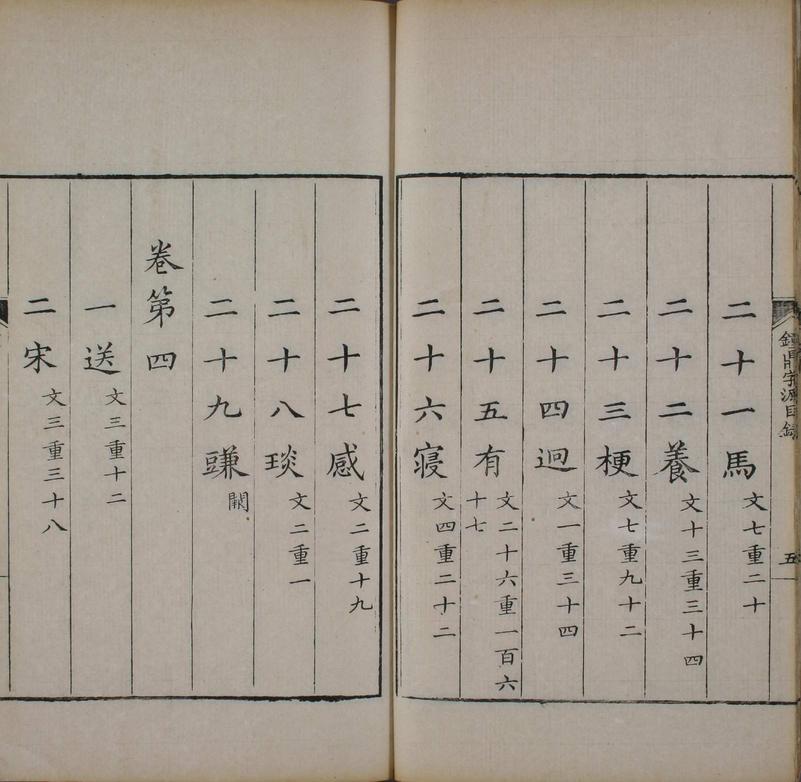 鐘鼎字源目錄
五
二十一馬文七重二十
二十二養文十三重三十四
二十三梗文七重九十二
二十四迥文一重三十四
二十五有文二十六重一百六十七
二十六寑文四重二十二
二十七感文二重十九
二十八琰文二重一
二十九豏闕
卷第四
一送文三重十二
二宋文三重三十八